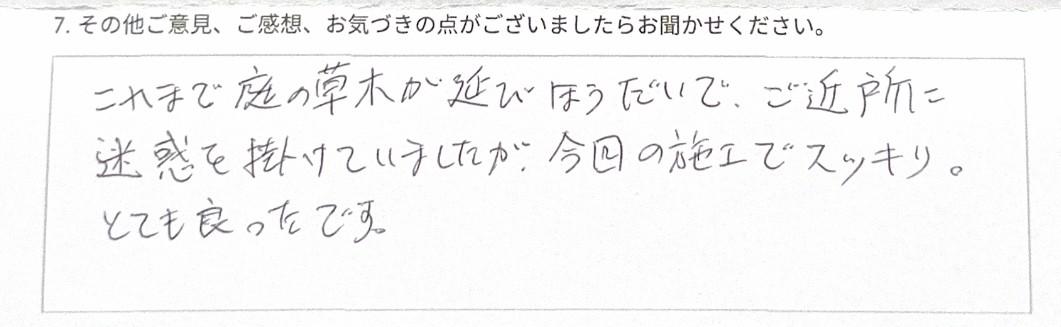 7. その他ご意見、ご感想、お気づきの点がございましたらお聞かせください。
これまで庭の草木が延びほうだいで、ご近所に
迷惑を掛けていましたが、今回の施工でスッキリ。
とても良ったです。